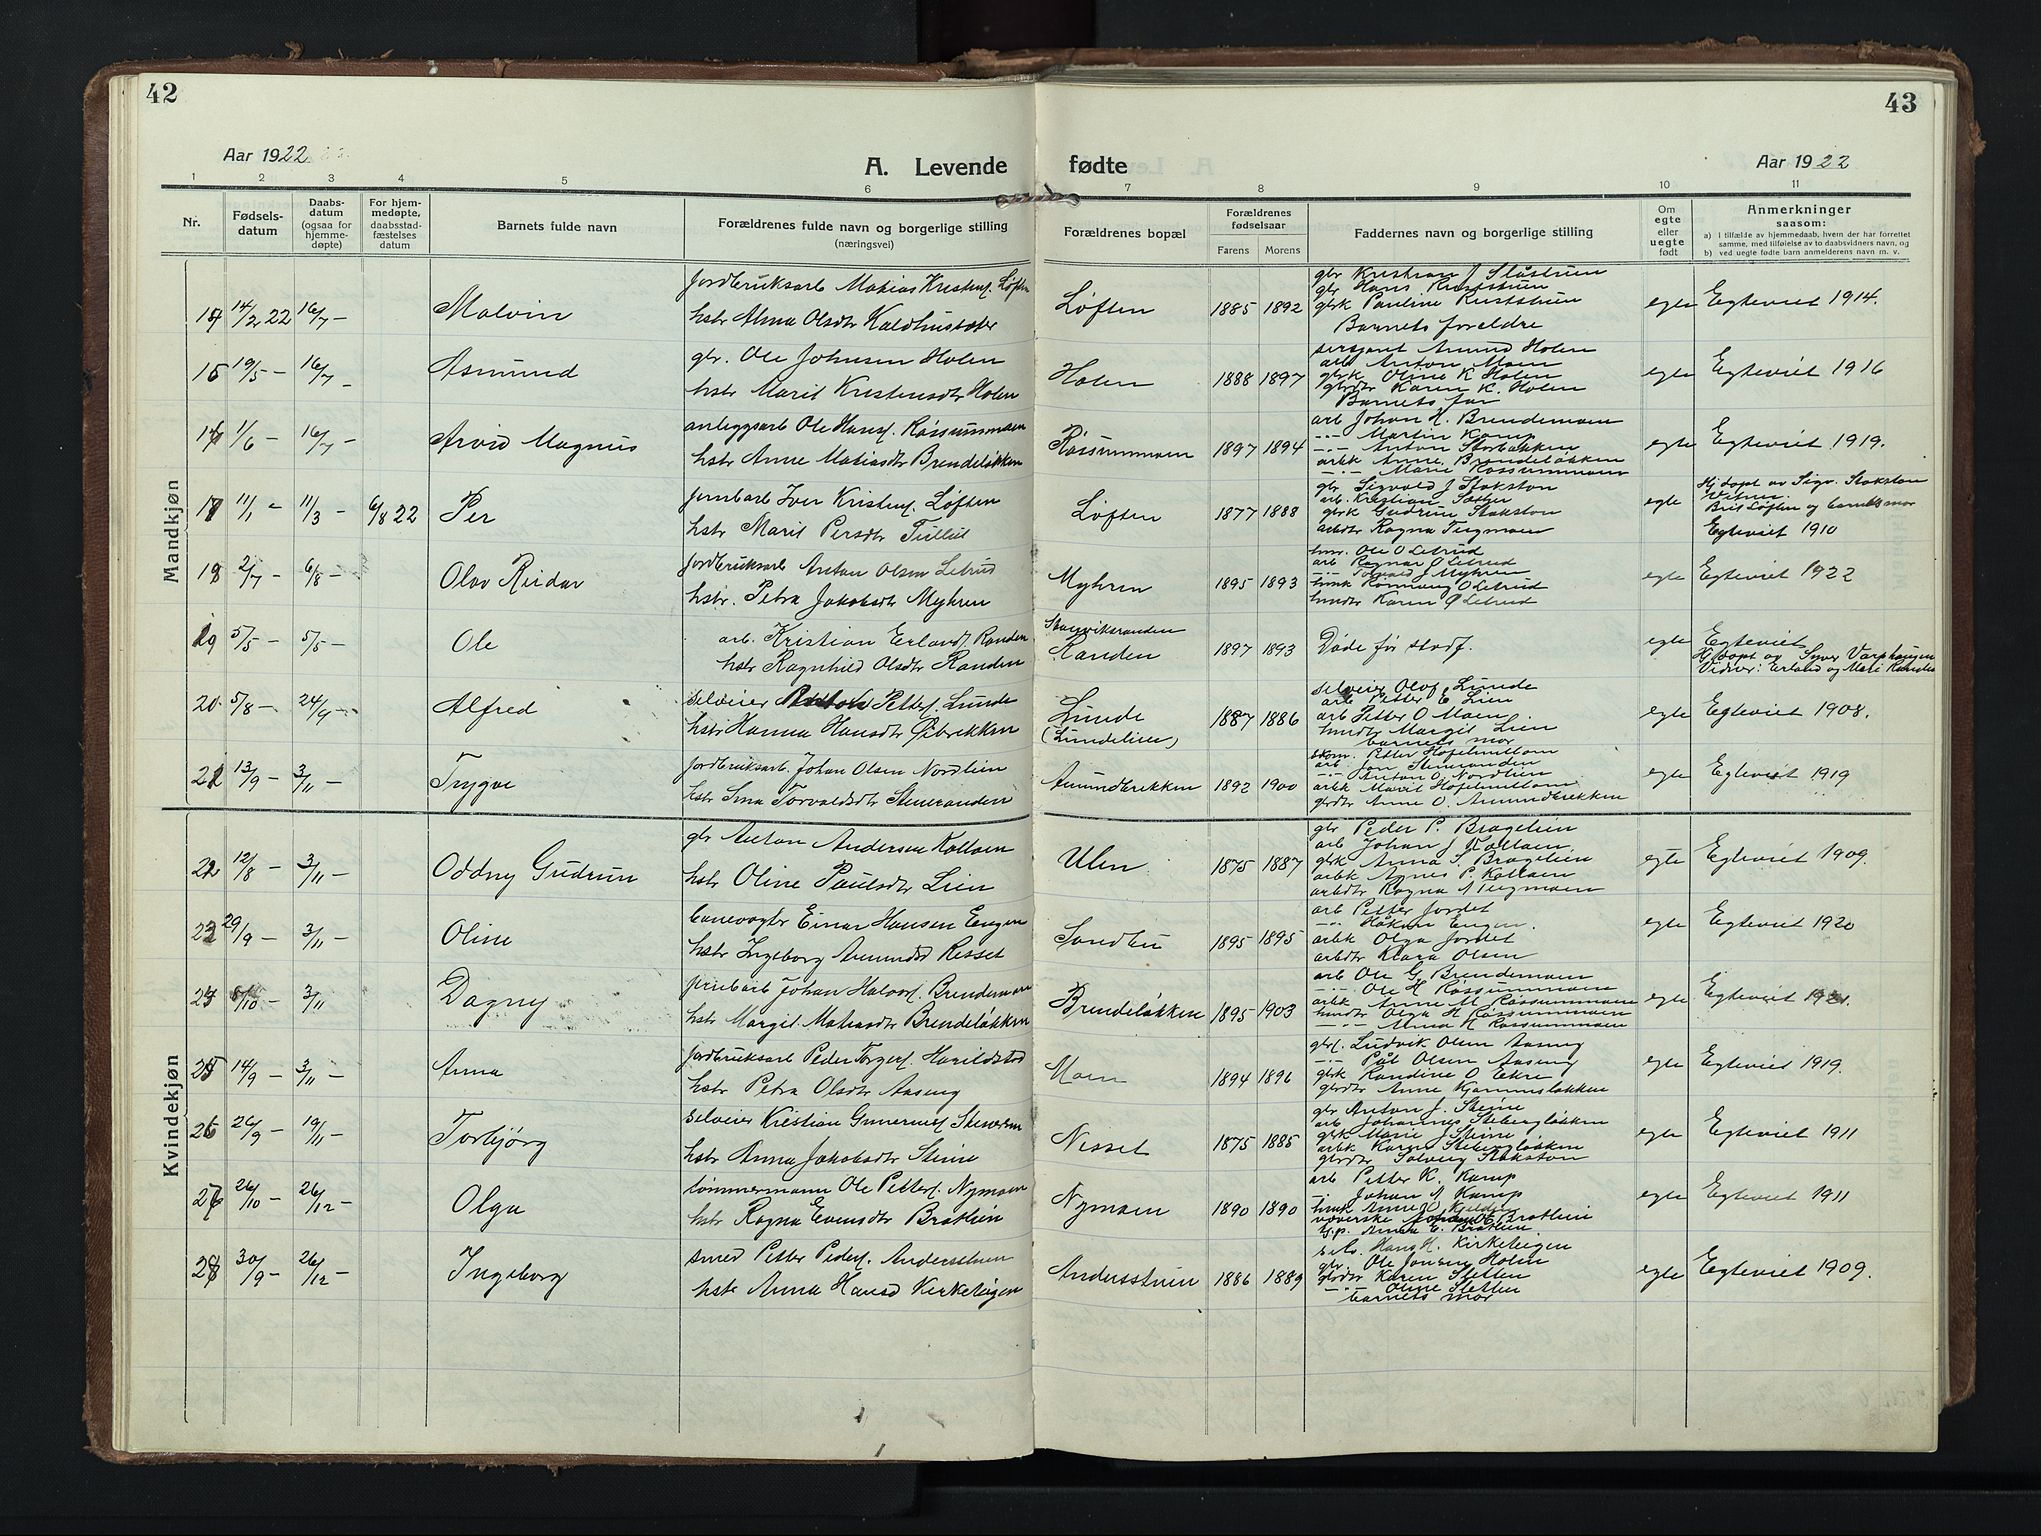 42
43
Aar 1922
A. Levende fødte
Aar 1922
1 2 3 4 5 6 7 8 9 10 11
Nr.
Fødsels-
datum
Daabs-
datum
(ogsaa for
hjemme-
døpte)
For hjem-
medøpte,
daabsstad-
fæstelses
datum
Barnets fulde navn
Forældrenes fulde navn og borgerlige stilling
(næringsvei)
Forældrenes bopæl
Forældrenes
fødselsaar
Farens Morens
Faddernes navn og borgerlige stilling
Om
egte
eller
uegte
født
Anmerkninger
saasom:
a) I tilfælde av hjemmedaab, hvem der har forrettet
samme, med tilføielse av to daabsvidners navn, og
b) ved uegte fødte barn anmelderens navn m. v.
Mandkjøn
14/2 22 16/7 – Malvin
Jordbruksarb Matias Kristens. Løften
hstr Alma Olsdtr Kaldhussæter
Løften 1885 1892
gbr Kristian J Slåstuen
gbr Hans Kuststuen
gbrk Pauline Kuststuen
Barnets foreldre
egte Egteviet 1914.
15 19/5 – 16/7 – Asmund
gbr. Ole Johnsen Holen
hstr Marit Kristensdtr Holen
Holen 1888 1897
sersjant Amund Holen
arb Anton Moen
gbrk Oline K Holen
gbrdtr Karen K. Holen
Barnets far
egte Egteviet 1916
16 1/6 – 16/7 – Arvid Magnus
anleggsarb Ole Hans. Røssummoen
hstr Anne Matiasdtr Brendeløkken
Røssummoen 1897 1894
arb Johan H. Brendemoen
–"– Martin Kamp
–"– Anton Storbækken
arbk Anne Brendeløkken
–"– Marie Røssummoen
egte Egteviet 1919.
17 11/1 – 11/3 – 6/8 22 Per
Jernbarb Iver Kristens. Løften
hstr Marit Persdtr Tullut
Løften 1877 1888
gbr Sigvald J Stokston
arb. Kristian Sæther
gbrk Gudrun Stokston
arbdtr Ragna Tingmoen
egte
Hj.døpt av Sigv. Stokston
Vitner.
Bris Løften og barnets mor
Egteviet 1910
18 2/7 – 6/8 – Olav Reidar
Jordbruksarb Anton Olsen Letrud
hstr. Petra Jakobsdtr Myhren
Myhren 1895 1893
hm. Ole O Letrud
arb Ragnar O Letrud
–"– Torvald J Myhren
hmk Hennang O Letrud
hmdtr Karen O Letrud
egte Egteviet 1922
19 5/5 – 5/5 – Ole
arb. Kristian Erlands. Randen
hstr Ragnhild Olsdtr Randen
Stangviksranden
Randen 1897 1893
Døde før stadf.
egte Egteviet
Hj.døpt av Syver Varphaugen
Vidner: Erland og Mari Randen
20 5/8 – 24/9 – Alfred
selveier Anton Petters. Lunde
hstr Hanna Hansdtr Øibrekken
Lunde
(Lundelien) 1887 1886
selveier Olof Lunde
arb Petter E Lien
arb Petter O Moen
hmdtr Margit Lien
barnets mor
egte Egteviet 1908.
21 13/9 – 3/11 – Trygve
Jordbruksarb. Johan Olsen Nordlien
hstr Sina Torvaldsdtr Steneranden
Amundbrekken 1892 1900
arb. Jon Steneranden
–"– Anton O. Nordlien
gbrdtr Anne O. Amundbrekken
egte Egteviet 1919
Kvindekjøn
22 12/8 – 3/11 – Oddny Gudrun
gbr Anton Andersen Kolloen
hstr Oline Paulsdtr Lien
Ulen 1875 1887
gbr Peder P. Bragelien
arb Johan J Kolloen
gbrk Anna S. Bragelien
arbk Agnes P. Kolloen
arbdtr Ragna A Tingmoen
egte Egteviet 1909.
23 29/9 – 3/11 – Oline
banevogter Einar Hansen Engen
hstr Ingeborg Amundsd Risset
Sandbu 1895 1895
arb Petter Jordet
–"– Håkon Engen.
arbk Olga Jordet
arbdtr Klara Olsen
egte Egteviet 1920
24 5/10 – 3/11 Dagny
Jernbarb Johan Halvors. Brendemoen
hstr Margit Matiasdtr Brendeløkken
Brendeløkken 1895 1903
arb Ole G. Brendemoen
–"– Ole H. Røssummoen
arbk Anne M. Røssummoen
hmdtr Olga H Røssummoen
–"– Anna H Røssummoen
egte Egteviet 1921.
25 14/9 – 3/11 – Anna
Jordbruksarb Peder Torgers. Harildstad
hstr Petra Olsdtr Aaseng
Moen 1894 1896
gbrs. Ludvik Olsen Aaseng
–"– Pål Olsen Aaseng
gbrk Randine O Ekre
gbrdtr Anne Kjemsløkken
egte Egteviet 1919.
26 26/9 – 19/11 – Torbjørg
selveier Kristian Gunerius. Stenersen
hstr Anna Jakobsdtr Steine
Nisset 1875 1885
gbr Anton J. Steine
arb Johannes Stebergløkken
gbrk Marie J Steine
arbk Karen Stebergløkken
gbrdtr Solveig Stokston
egte Egteviet 1911
27 26/10 – 26/12 – Olga
tømmermann Ole Petters. Nymoen
hstr Ragna Evensdtr Bratlien
Nymoen 1890 1890
arb Petter K. Kamp
–"– Johan N Kamp
væverske Bratlien
t.p. Anna E. Bratlien
egte Egteviet 1911
28 30/9 – 26/12 – Ingeborg
smed Petter Peders. Andersstuen
hstr Anna Hansd Kirkeleigen
Andersstuen 1886 1889
selv. Hans H. Kirkeleigen
gbr. Ole Jonsen Holen
gbrdtr Karen Sletten
–"– Oline Sletten
barnets mor
egte Egteviet 1909.